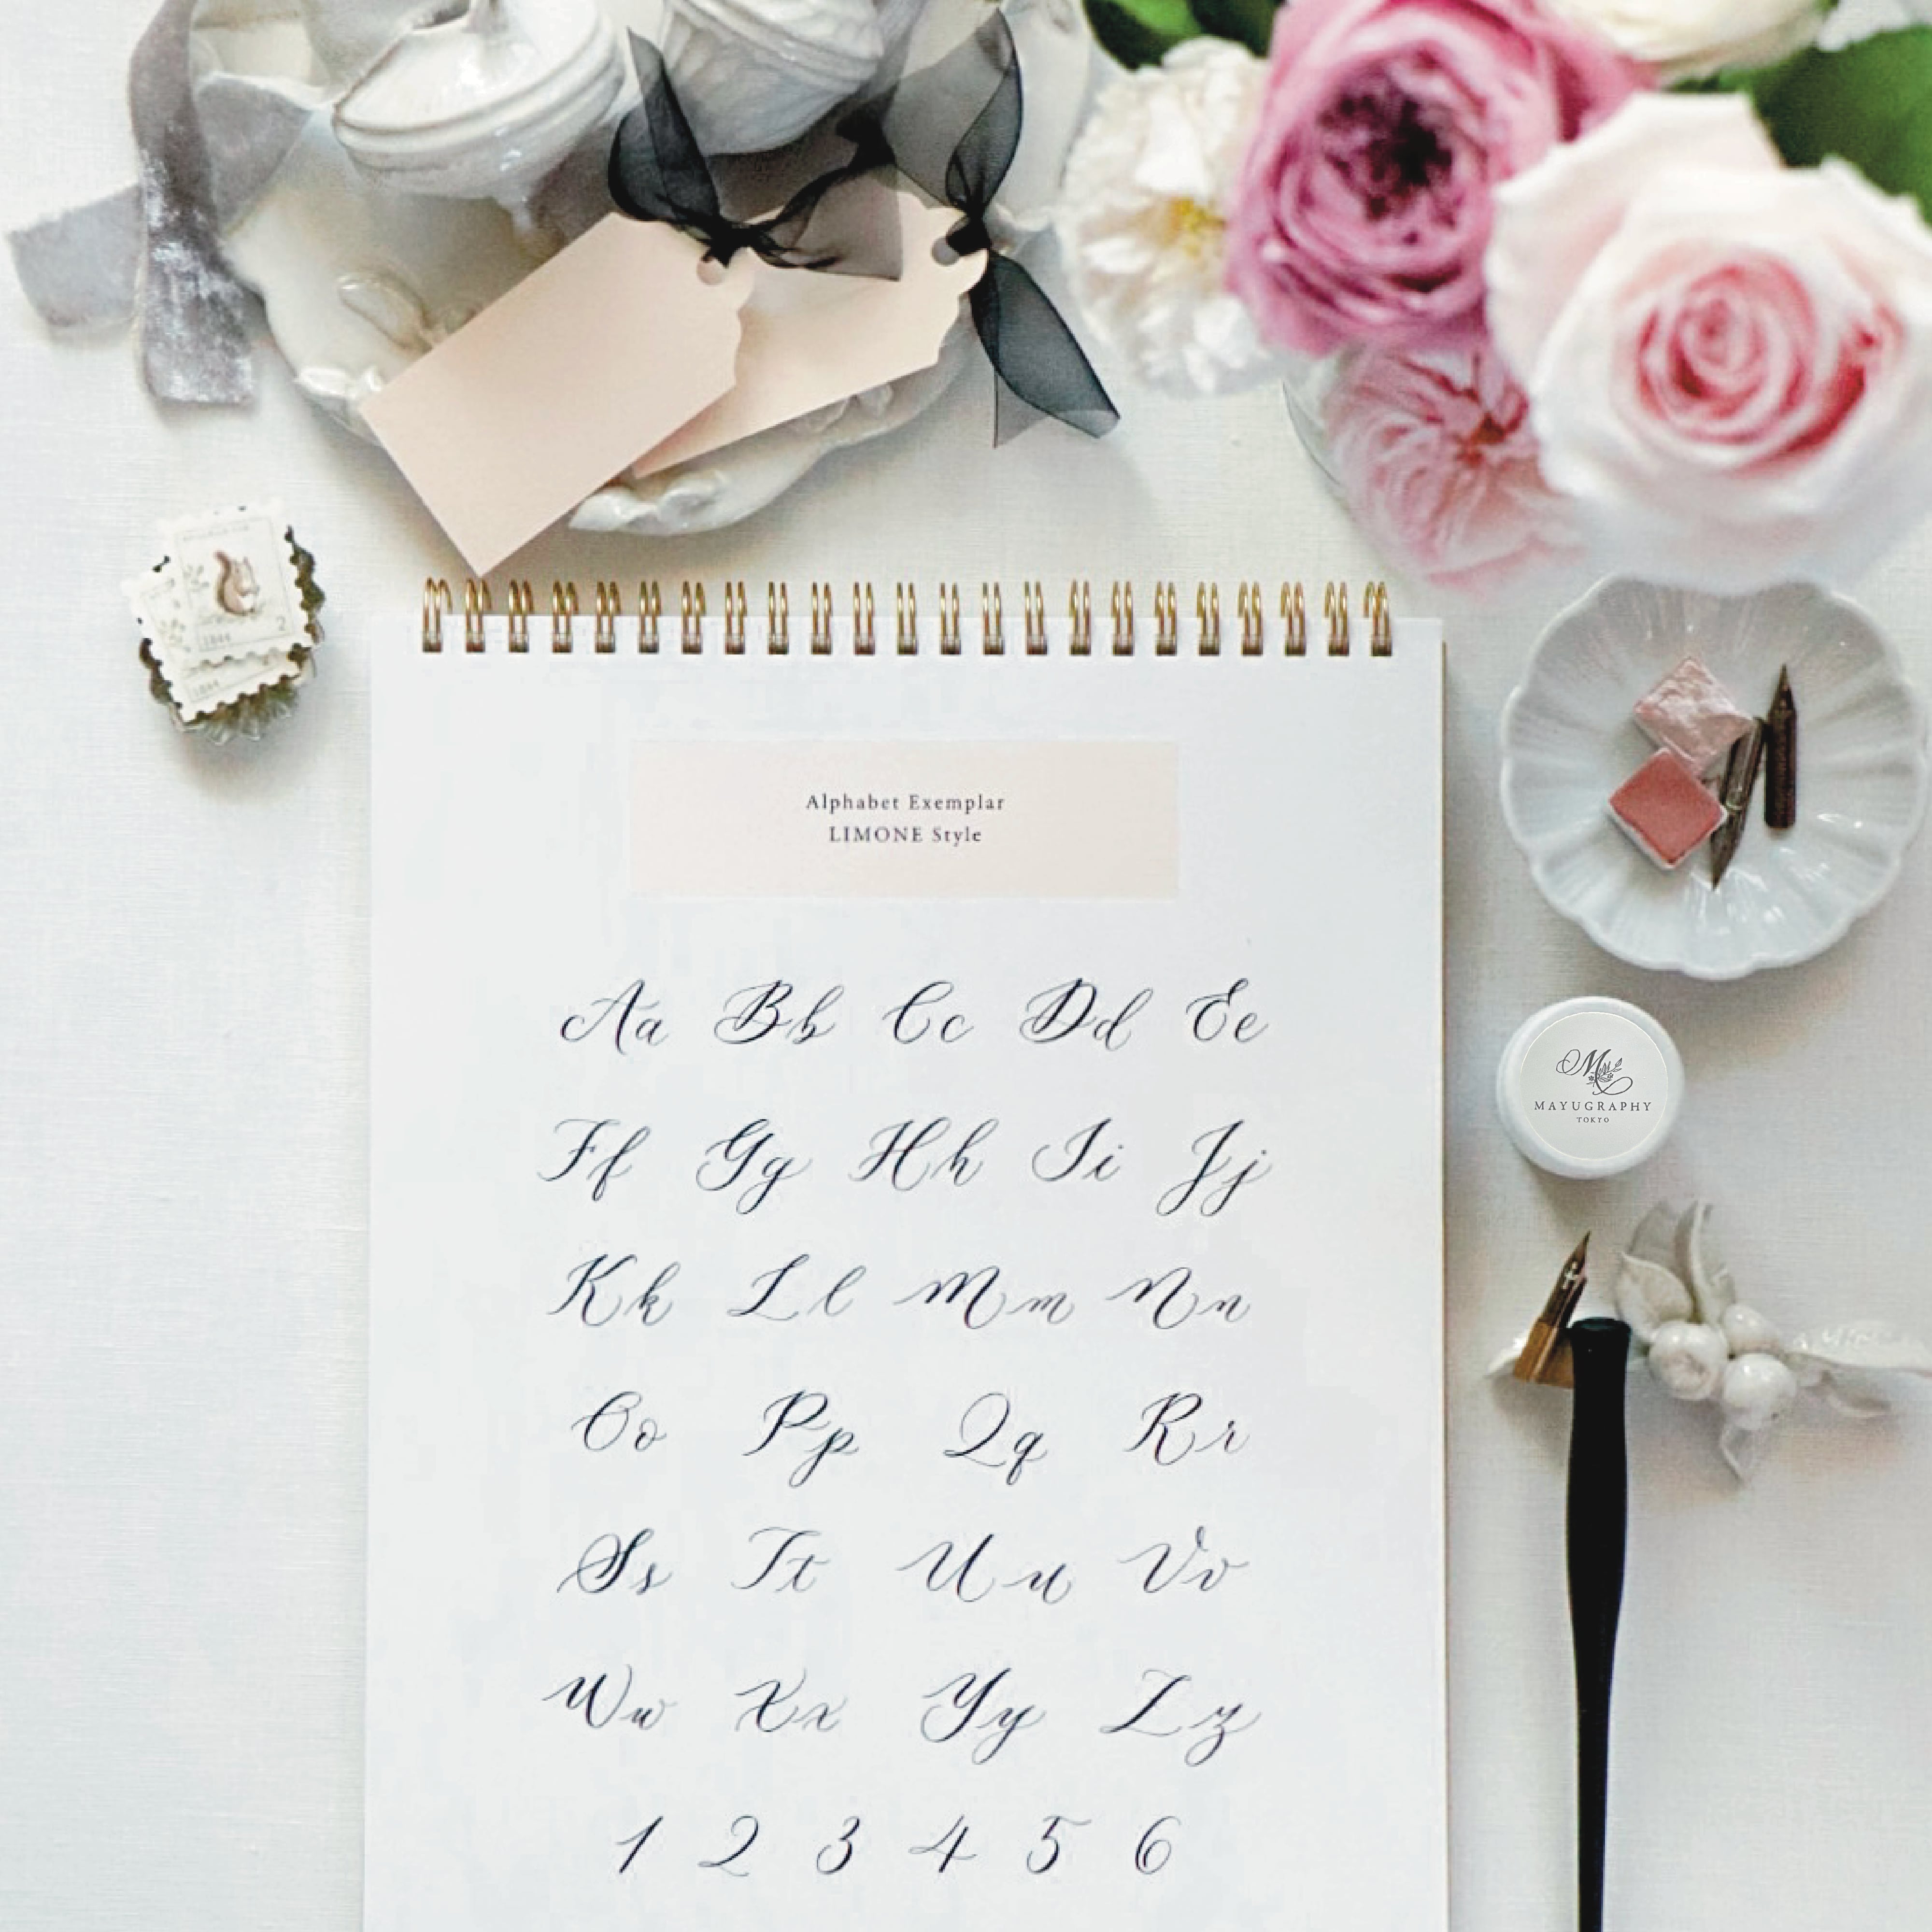 1844 2
1844
Alphabet Exemplar
LIMONE Style
Aa Bb Cc Dd Ee
Ff Gg Hh Ii Jj
Kk Ll Mm Nn
Oo Pp Qq Rr
Ss Tt Uu Vv
Ww Xx Yy Zz
1 2 3 4 5 6
M
MAYUGRAPHY
TOKYO